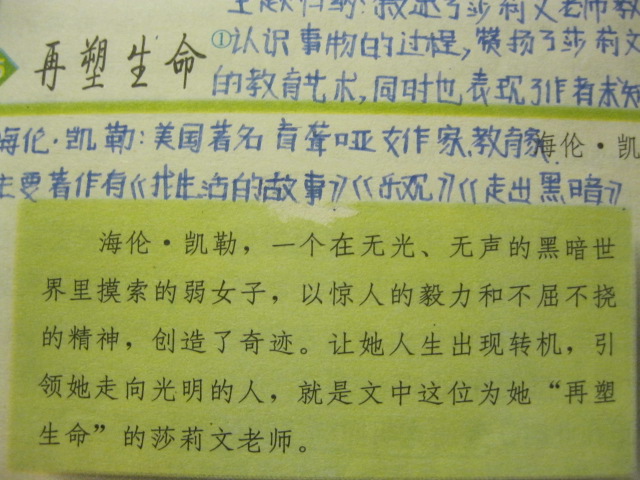 主题归纳:叙述了莎莉文老师教
再塑生命 ①认识事物的过程,赞扬了莎莉文
的教育艺术,同时也表现了作者求知
海伦·凯勒:美国著名盲聋哑女作家、教育家 海伦·凯
主要著作有《我生活的故事》《乐观》《走出黑暗》
海伦·凯勒,一个在无光、无声的黑暗世
界里摸索的弱女子,以惊人的毅力和不屈不挠
的精神,创造了奇迹。让她人生出现转机,引
领她走向光明的人,就是文中这位为她“再塑
生命”的莎莉文老师。